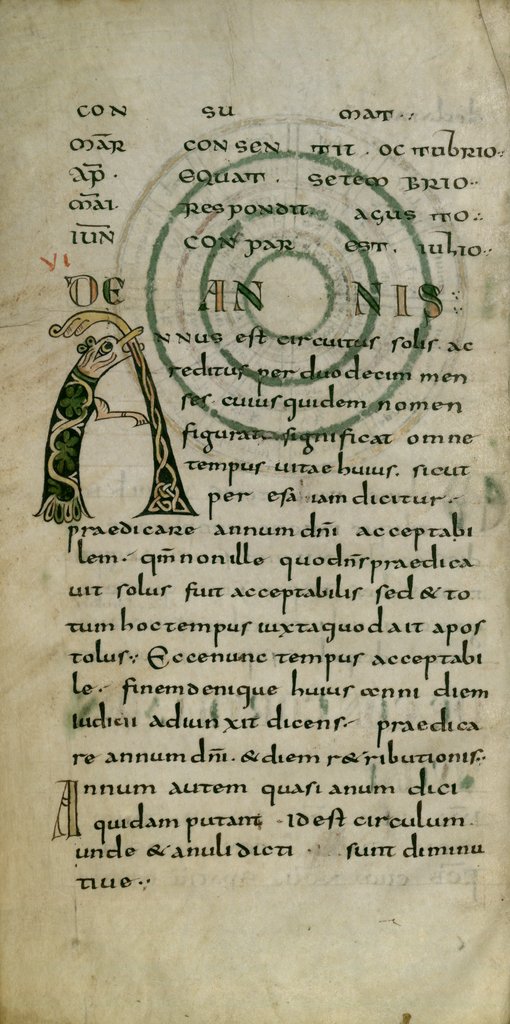 CON SU MAT
MAR̄ CONSEN TIT. OCTUBRIO
AP̄. EQUAT. SETEMBRIO
MAI. RESPONDIT. AGUSTO
IUN̄ CONPAR EST. IULIO
VI
DE ANNIS
Annus est circuitus solis. ac
reditus per duodecim men
ses. cuius quidem nomen
figurat significat omne
tempus vitae huius. sicut
per esa iam dicitur.
praedicare annum dn̄i acceptabi
lem. qm̄ non ille quo dn̄s praedica
uit solus fuit acceptabilis sed & to
tum hoc tempus iuxta quod ait apos
tolus. Ecce nunc tempus acceptabi
le. finem denique huius anni diem
iudicii adiunxit dicens. praedica
re annum dn̄i. & diem r&ributionis.
Annum autem quasi anum dici
quidam putant. Id est circulum.
unde & anuli dicti sunt diminu
tiue.